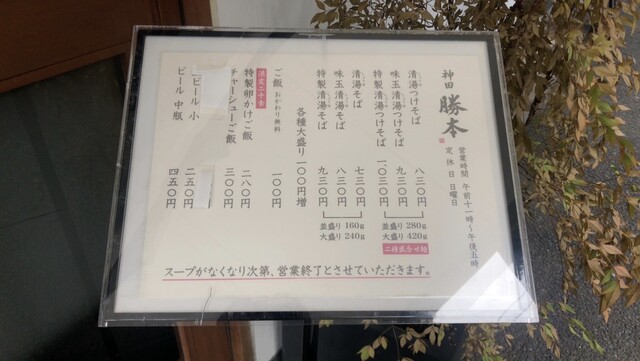 神田 勝本
営業時間 午前十一時～午後五時
定休日 日曜日
清湯つけそば 八三〇円
味玉清湯つけそば 九三〇円
特製清湯つけそば 一、〇三〇円
並盛り 280g
大盛り 420g
二種盛合せ麺
清湯そば 七三〇円
味玉清湯そば 八三〇円
特製清湯そば 九三〇円
並盛り 160g
大盛り 240g
各種大盛り一〇〇円増
ご飯 おかわり無料 一〇〇円
限定二十食
特製卵かけご飯 二八〇円
チャーシューご飯 三〇〇円
ビール 小 二五〇円
ビール 中瓶 四五〇円
スープがなくなり次第、営業終了とさせていただきます。